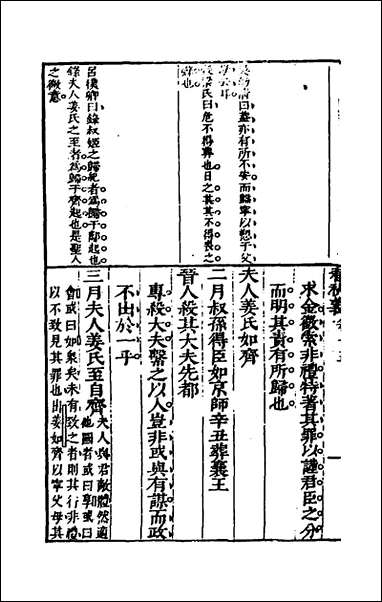 甫曰蓋亦有所不安而歸寧以愬于父
氏曰危不得葬也日之甚矣其不得葬之
辭也
呂樸卿曰錄叔姬之歸紀者為歸于酅起也
錄夫人姜氏之至者為歸于齊起也是聖人
之微意
春秋義 卷十五
求金徵索非禮特著其罪以謹君臣之分
而明其責有所歸也
夫人姜氏如齊
二月叔孫得臣如京師辛丑葬襄王
晉人殺其大夫先都
專殺大夫 之以人豈非或與有謀而政
不出於一乎
三月夫人姜氏至自齊
夫人與君敵體然適
他國者或曰享或曰
會或曰如奚矣未有致之者則其行非禮
以不致見其罪也出姜如齊以寧父母其